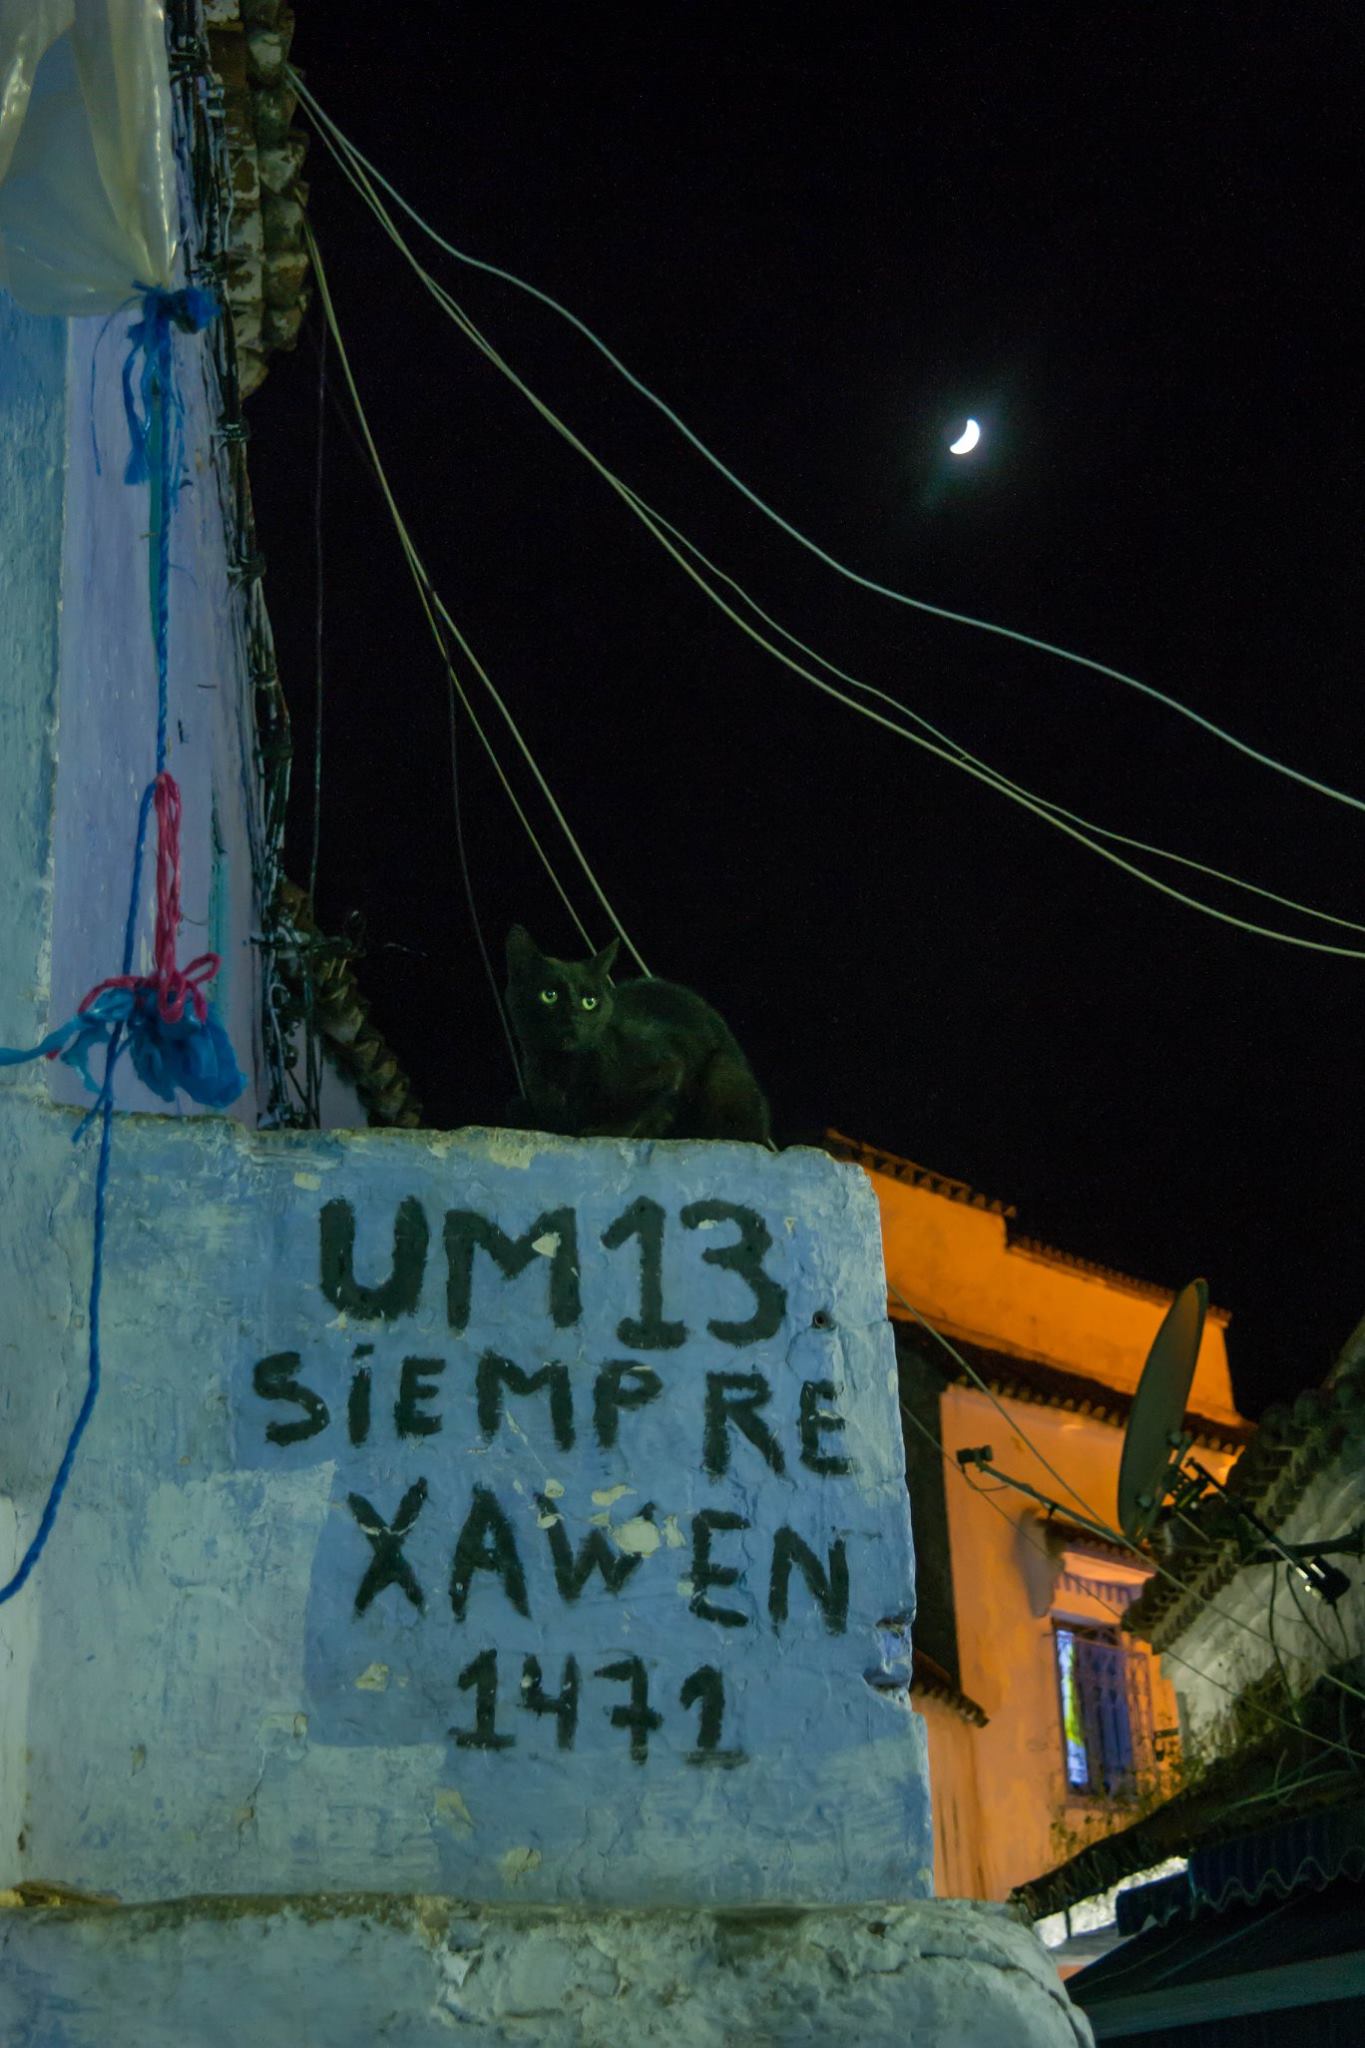 UM13
SiEMPRE
XAWEN
1471